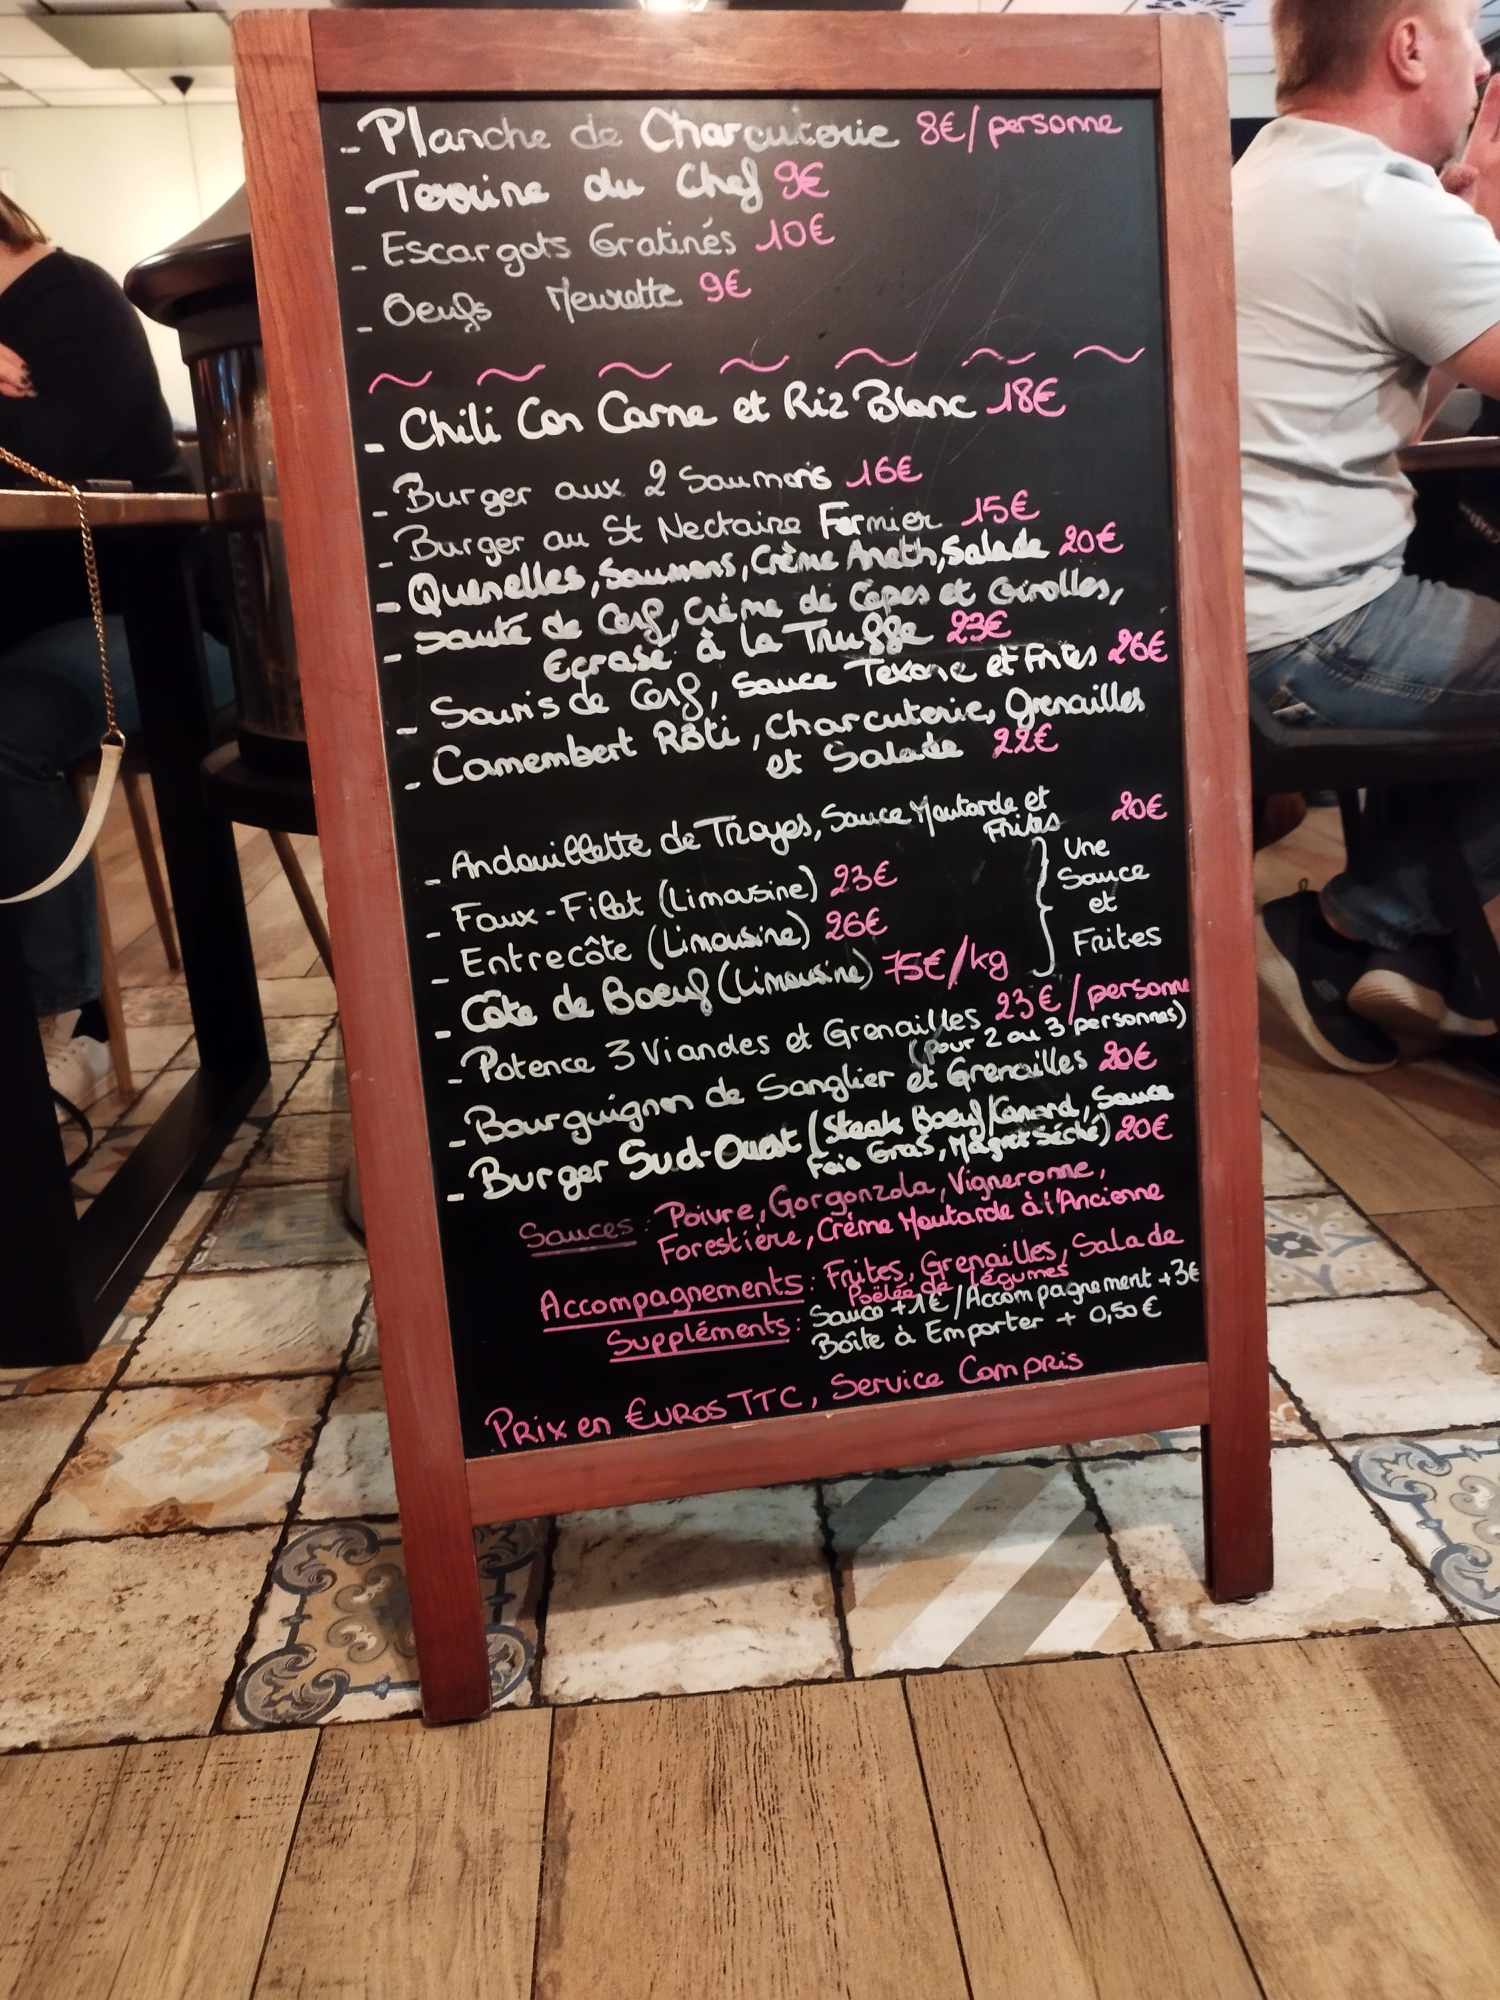 - Planche de Charcuterie 8€/personne
- Terrine du Chef 9€
- Escargots Gratinés 10€
- Oeufs Meurette 9€
- Chili Con Carne et Riz Blanc 18€
- Burger aux 2 Saumons 16€
- Burger au St Nectaire Fermier 15€
- Quenelles, Saumons, Crème Aneth, Salade 20€
- Sauté de Cerf, Crème de Cèpes et Girolles,
Ecrasé à la Truffe 23€
- Souris de Cerf, Sauce Texane et Frites 26€
- Camembert Rôti, Charcuterie, Grenailles
et Salade 22€
- Andouillette de Troyes, Sauce Moutarde et
Frites 20€
- Faux-Filet (Limousine) 23€
- Entrecôte (Limousine) 26€
- Côte de Boeuf (Limousine) 75€/kg
} Une
Sauce
et
Frites
- Potence 3 Viandes et Grenailles 23€/personne
(pour 2 ou 3 personnes)
- Bourguignon de Sanglier et Grenailles 20€
- Burger Sud-Ouest (Steak Boeuf/Canard, Sauce
Foie Gras, Magret Séché) 20€
Sauces : Poivre, Gorgonzola, Vigneronne,
Forestière, Crème Moutarde à l'Ancienne
Accompagnements : Frites, Grenailles, Salade
Poêlée de légumes
Suppléments : Sauce +1€/Accompagnement +3€
Boîte à Emporter + 0,50€
Prix en €uros TTC, Service Compris